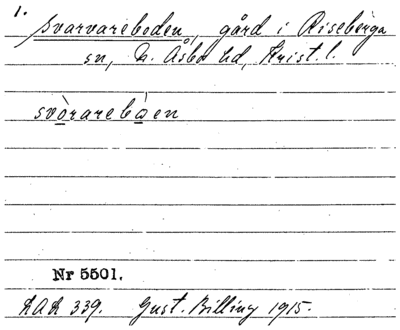 1.
Svarvareboden, gård i Riseberga
sn, N. Åsbo hd, Krist. l.
svòrarebo̱en
Nr 5501.
LAL 339. Gust. Billing 1915.